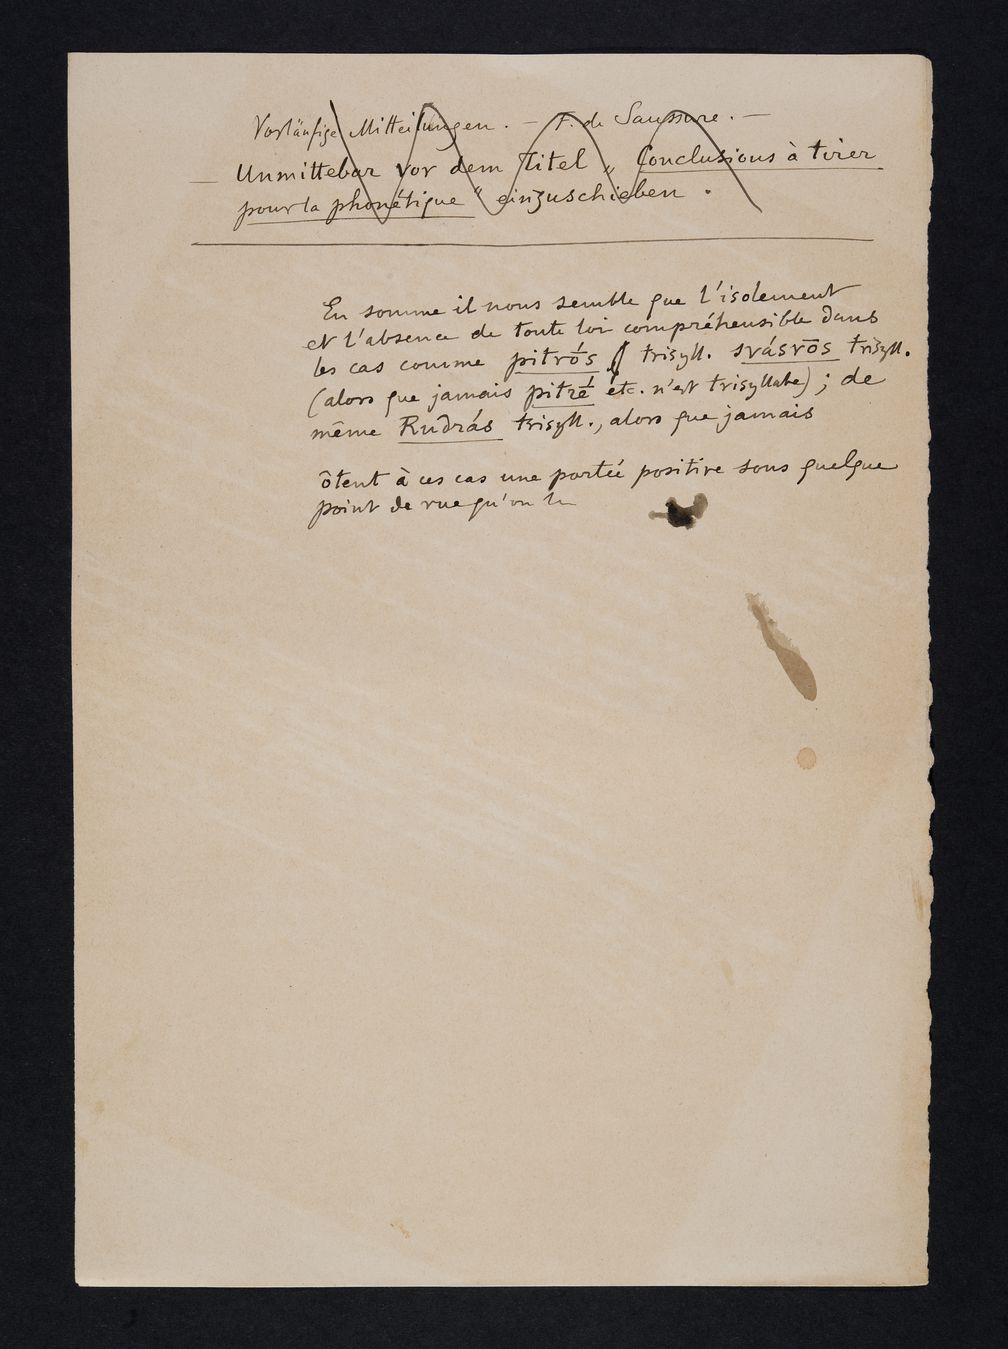 Vorläufige Mitteilungen. — F. de Saussure. —
— Unmittebar vor dem Titel „ Conclusions à tirer
pour la phonétique “ einzuschieben .
En somme il nous semble que l'isolement
et l'absence de toute loi compréhensible dans
les cas comme pitrṓs trisyll. svásrōs trisyll.
(alors que jamais pitré etc. n'est trisyllabe) ; de
même Rudrás trisyll., alors que jamais
ôtent à ces cas une portée positive sous quelque
point de vue qu'on